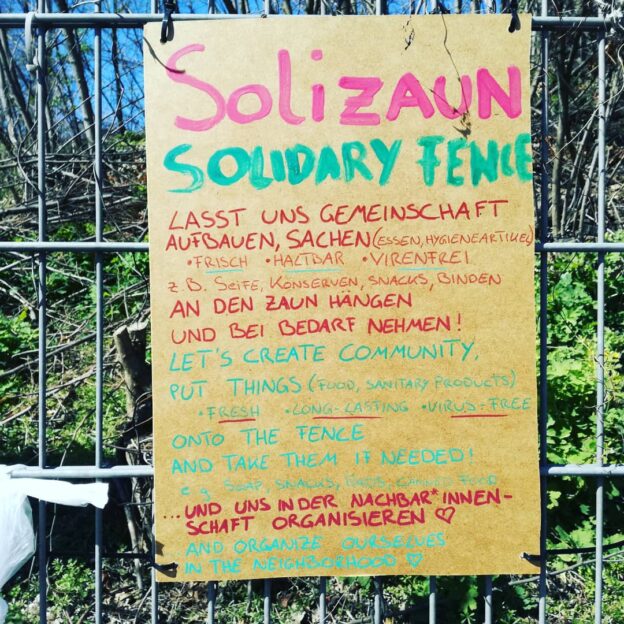 SOLIZAUN
SOLIDARY FENCE
LASST UNS GEMEINSCHAFT
AUFBAUEN, SACHEN (ESSEN, HYGIENEARTIKEL)
• FRISCH • HALTBAR • VIRENFREI
z B. SEIFE, KONSERVEN, SNACKS, BINDEN
AN DEN ZAUN HÄNGEN
UND BEI BEDARF NEHMEN!
LET'S CREATE COMMUNITY,
PUT THINGS (FOOD, SANITARY PRODUCTS)
• FRESH • LONG-LASTING • VIRUS-FREE
ONTO THE FENCE
AND TAKE THEM IF NEEDED!
e.g. SOAP, SNACKS, PADS, CANNED FOOD
... UND UNS IN DER NACHBAR*INNEN-
SCHAFT ORGANISIEREN ♡
AND ORGANIZE OURSELVES
IN THE NEIGHBORHOOD ♡